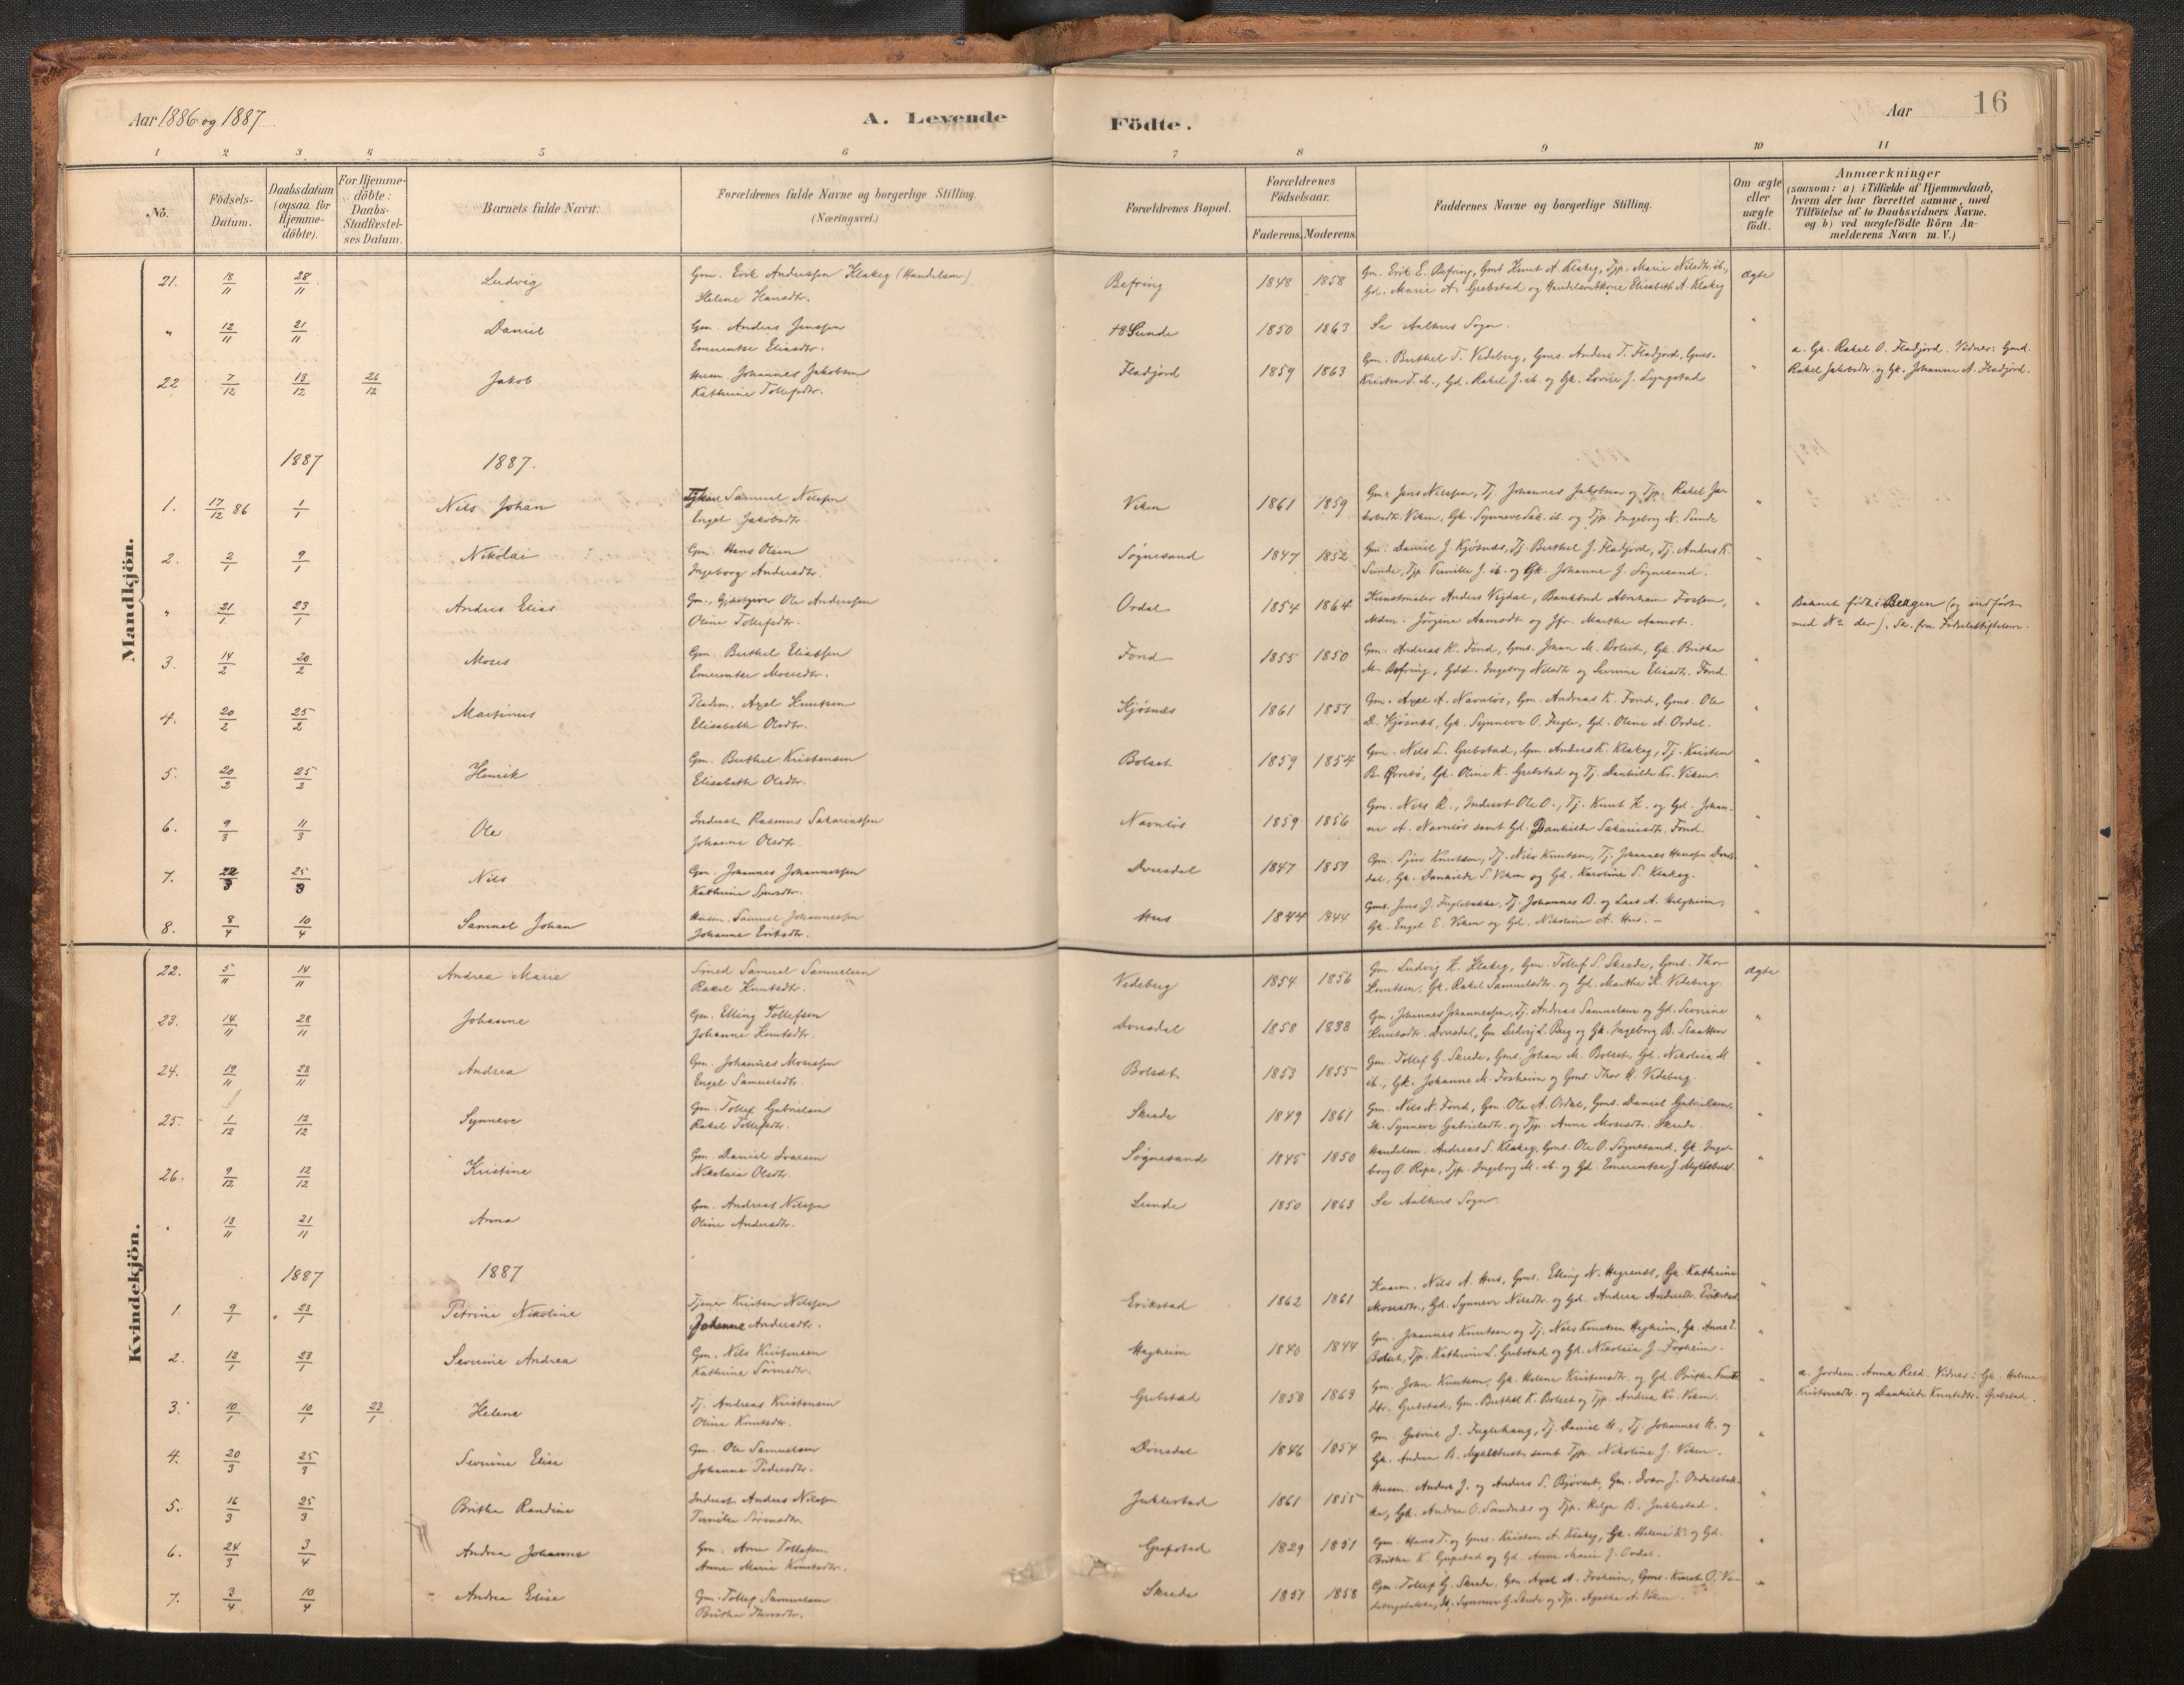 Aar 1886 og 1887
A. Levende
Födte.
Aar
16
1 2 3 4 5 6 7 8 9 10 11
No.
Födsels-Datum.
Daabsdatum (ogsaa for Hjemme-döbte).
For Hjemme-döbte: Daabs-Stadfæstel-ses Datum.
Barnets fulde Navn.
Forældrenes fulde Navne og borgerlige Stilling (Næringsvei.)
Forældrenes Bopæl.
Forældrenes Födselsaar.
Faderens. Moderens.
Faddernes Navne og borgerlige Stilling.
Om ægte eller uægte födt.
Anmærkninger
(saasom: a) i Tilfælde af Hjemmedaab,
hvem der har forrettet samme, med
Tilföielse af to Daabsvidners Navne,
og b) ved uægtefödte Börn An-
melderens Navn m. V.)
Mandkjön.
21. 18/11 28/11 Ludvig Gm. Erik Anderssen Klakeg (Handelsm.) Befring 1848 1858 Gm. Erik E. Befring, Gmd Knut A. Klakeg, Tjp. Marie Nilsdtr. ib., ægte
Helene Hansdtr. Gd. Marie A. Grebstad og Handelsmkone Elisabeth A. Klakeg
" 12/11 21/11 Daniel Gm. Andreas Jenssen Sunde 1850 1863 Se Aalhus Sogn. "
Emerentse Eliasdtr.
22 7/12 13/12 26/12 Jakob Husm. Johannes Jakobsen Fladjord 1859 1863 Gm. Berthel T. Vedeberg, Gms. Anders T. Fladjord, Gms. " a. Gk. Rakel O. Fladjord. Vidner: Gmd.
Kathrine Tollefsdtr. Kristen T. ib., Gd. Rakel J. ib. og Gk. Lovise J. Lyngstad Rakel Jakobsdtr. og Gk. Johanne A. Fladjord.
1887 1887.
1. 17/12 86 1/1 Nils Johan Samuel Nilssen Viken 1861 1859 Gm. Jens Nilssen, Tj. Johannes Jakobsen og Tjp. Rakel Ja- "
Engel Jakobsdtr. kobsdtr. Viken, Gk. Synneve Sak. ib. og Tjp. Ingeborg N. Sunde
2. 2/1 9/1 Nikolai Gm. Hans Olsen Søgnesand 1847 1852 Gm. Daniel J. Kjøsnæs, Tj. Berthel J. Fladjord, Tj. Anders K. "
Ingeborg Andersdtr. Sunde, Tjp. Pernille J. ib. og Gk. Johanne J. Søgnesand.
" 21/1 23/1 Andreas Elias Gm., Gjæstgiver Ole Anderssen Ordal 1854 1864 Kunstmaler Anders Vigdal, Bankbud Abraham Fossen, " Barnet født i Bergen (og indført
Oline Tollefsdtr. Mdm. Jörgine Aamodt og Jfr. Marthe Aamot. med No. der). Se. fra Fødselsstiftelsen.
3. 14/2 20/2 Moses Gm. Berthel Eliassen Fond 1855 1850 Gm. Andreas K. Fond, Gms. Johan M. Bolset, Gk. Britha "
Emerentse Mosesdtr. M. Befring, Gdd. Ingeborg Nilsdtr. og Severine Eliasdtr. Fond.
4. 20/2 25/2 Martinus Pladsm. Axel Knutsen Kjøsnæs 1861 1857 Gm. Axel A. Navnløs, Gm. Andreas K. Fond, Gms. Ole "
Elisabeth Olsdtr. D. Kjøsnæs, Gk. Synneve O. Fugle, Gd. Oline A. Ordal.
5. 20/2 25/2 Henrik Gm. Berthel Kristensen Bolset 1859 1854 Gm. Nils L. Grebstad, Gm. Anders K. Klakeg, Tj. Karsten "
Elisabeth Olsdtr. B. Øvrebö, Gk. Oline K. Grebstad og Tj. Danhilde Kr. Viken.
6. 9/3 11/3 Ole Inderst Rasmus Sakariassen Navnløs 1859 1856 Gm. Nils R., Inderst Ole O., Tj. Knut K. og Gd. Johan- "
Johanne Olsdtr. ne A. Navnløs samt Gd. Danhilde Sakariasdtr. Fond.
7. 22/3 25/3 Nils Gm. Johannes Johannessen Dvergsdal 1847 1857 Gm. Sjur Knutsen, Tj. Nils Knutsen, Tj. Johannes Hanssen "
Kathrine Sjursdtr. dal, Gk. Danhilde S. Viken og Gd. Karoline S. Klakeg.
8. 8/4 10/4 Samuel Johan Husm. Samuel Johannessen Hus 1844 1844 Gms. Jens J. Fuglebakke, Tj. Johannes B. og Lars A. Helgheim, "
Johanne Eriksdtr. Gk. Engel E. Viken og Gd. Nikoline A. Hus. –
Kvindekjön.
22. 5/11 14/11 Andrea Marie Smed Samuel Samuelsen Vedeberg 1854 1856 Gm. Ludvig K. Klakeg, Gm. Tollef S. Skrede, Gms. Thor ægte
Rakel Knutsdtr. Knutsen, Gk. Rakel Samuelsdtr. og Gd. Marthe K. Vedeberg.
23. 14/11 28/11 Johanne Gm. Elling Tollefsen 1858 1888 Gm. Johannes Johannessen, Tj. Andreas Samuelsen og Gd. Severine "
Johanne Knutsdtr. Knutsdtr. Gm Ludvig L. Berg og Gk. Ingeborg B.
24. 19/11 28/11 Andrea Gm. Johannes Mosessen Bolset 1853 1855 Gm. Tollef G. Skrede, Gms. Johan M. Bolset, Gd. Nikolaia M. "
Engel Samuelsdtr. ib., Gk. Johanne M. Forheim og Gms. Thor K. Vedeberg.
25. 1/12 12/12 Synneve Gm. Tollef Gabrielsen Skrede 1849 1861 Gm. Nils N. Fond, Gm. Ole A. Ordal, Gms. Daniel Gabrielsen, "
Rakel Tollefsdtr. Gk. Synneve Gabrielsdtr. og Tjp. Anne Mosesdtr. Skrede.
26. 9/12 12/12 Kristine Gm. Daniel Ivarsen Søgnesand 1845 1850 Handelsm. Andreas S. Klakeg, Gms. Ole O. Søgnesand, Gk. Inge- "
Nikolaia Olsdtr. borg O. Ripe, Tjp. Ingeborg M. ib. og Gd. Emerentse J. Myklebust.
" 13/11 21/11 Anna Gm. Andreas Nilssen Sunde 1850 1863 Se Aalhus Sogn.
Oline Andersdtr.
1887 1887
1. 9/1 23/1 Petrine Nikoline Tjener Kristen Nilssen Erikstad 1862 1861 Nils A. Hus, Gms. Elling N. Hegrenæs, Gk. Kathrine "
Johanne Andersdtr. Mosesdtr., Gd. Synneve Nilsdtr. og Gd. Andrea Andersdtr. Erikstad
2. 12/1 23/1 Severine Andrea Gm. Nils Kristensen Hegheim 1840 1844 Gm. Johannes Knutsen og Tj. Nils Knutsen Hegheim, Gk. Anne E. "
Kathrine Sörensdtr. Bolset, Tjp. Kathrine L. Grebstad og Gd. Nikolaia J. Forheim.
3. 10/1 10/1 23/1 Helene Tj. Andreas Kristensen Grebstad 1858 1863 Gm. John Knutsen, Gk. Helene Kristensdtr. og Gd. Britha Knuts- " a. Jordem. Anna Reed. Vidner: Gk. Helene
Oline Knutsdtr. dtr. Grebstad, Gm. Berthel K. Bolset og Tjp. Andrea Kr. Viken. Kristensdtr. og Danhilde Knutsdtr. Grebstad.
4. 20/3 25/3 Severine Elise Gm. Ole Samuelsen 1846 1854 Gm. Gabriel J. Fuglehaug, Tj. Daniel H., Tj. Johannes H. og "
Johanne Pedersdtr. Gk. Andrea B. Myklebust samt Tjp. Nikoline J. Viken.
5. 16/3 25/3 Britha Randine Inderst Anders Nilssen Juklestad 1861 1855 Husm. Anders J. og Anders S. Bjørset, Gm. Ivar J. Ordalsbak- "
Pernille Sörensdtr. ke, Gk. Andrea O. Sandnæs og Tjp. Helga B. Juklestad.
6. 24/3 3/4 Andrea Johanne Gm. Arne Tollefsen Grepstad 1829 1851 Gm. Hans T. og Gms. Kristen A. Klakeg, Gk. Helene K. og Gd. "
Anne Marie Knutsdtr. Britha K. Grepstad og Gd. Anne Marie J. Ordal.
7. 3/4 10/4 Andrea Elise Gm. Tollef Samuelsen Skrede 1857 1858 Gm. Tollef G. Skrede, Gm. Axel A. Forheim, Gms. Knut O. "
Britha Thorsdtr. Gk. Synneve G. Skrede og Tjp. Agathe A. Viken.